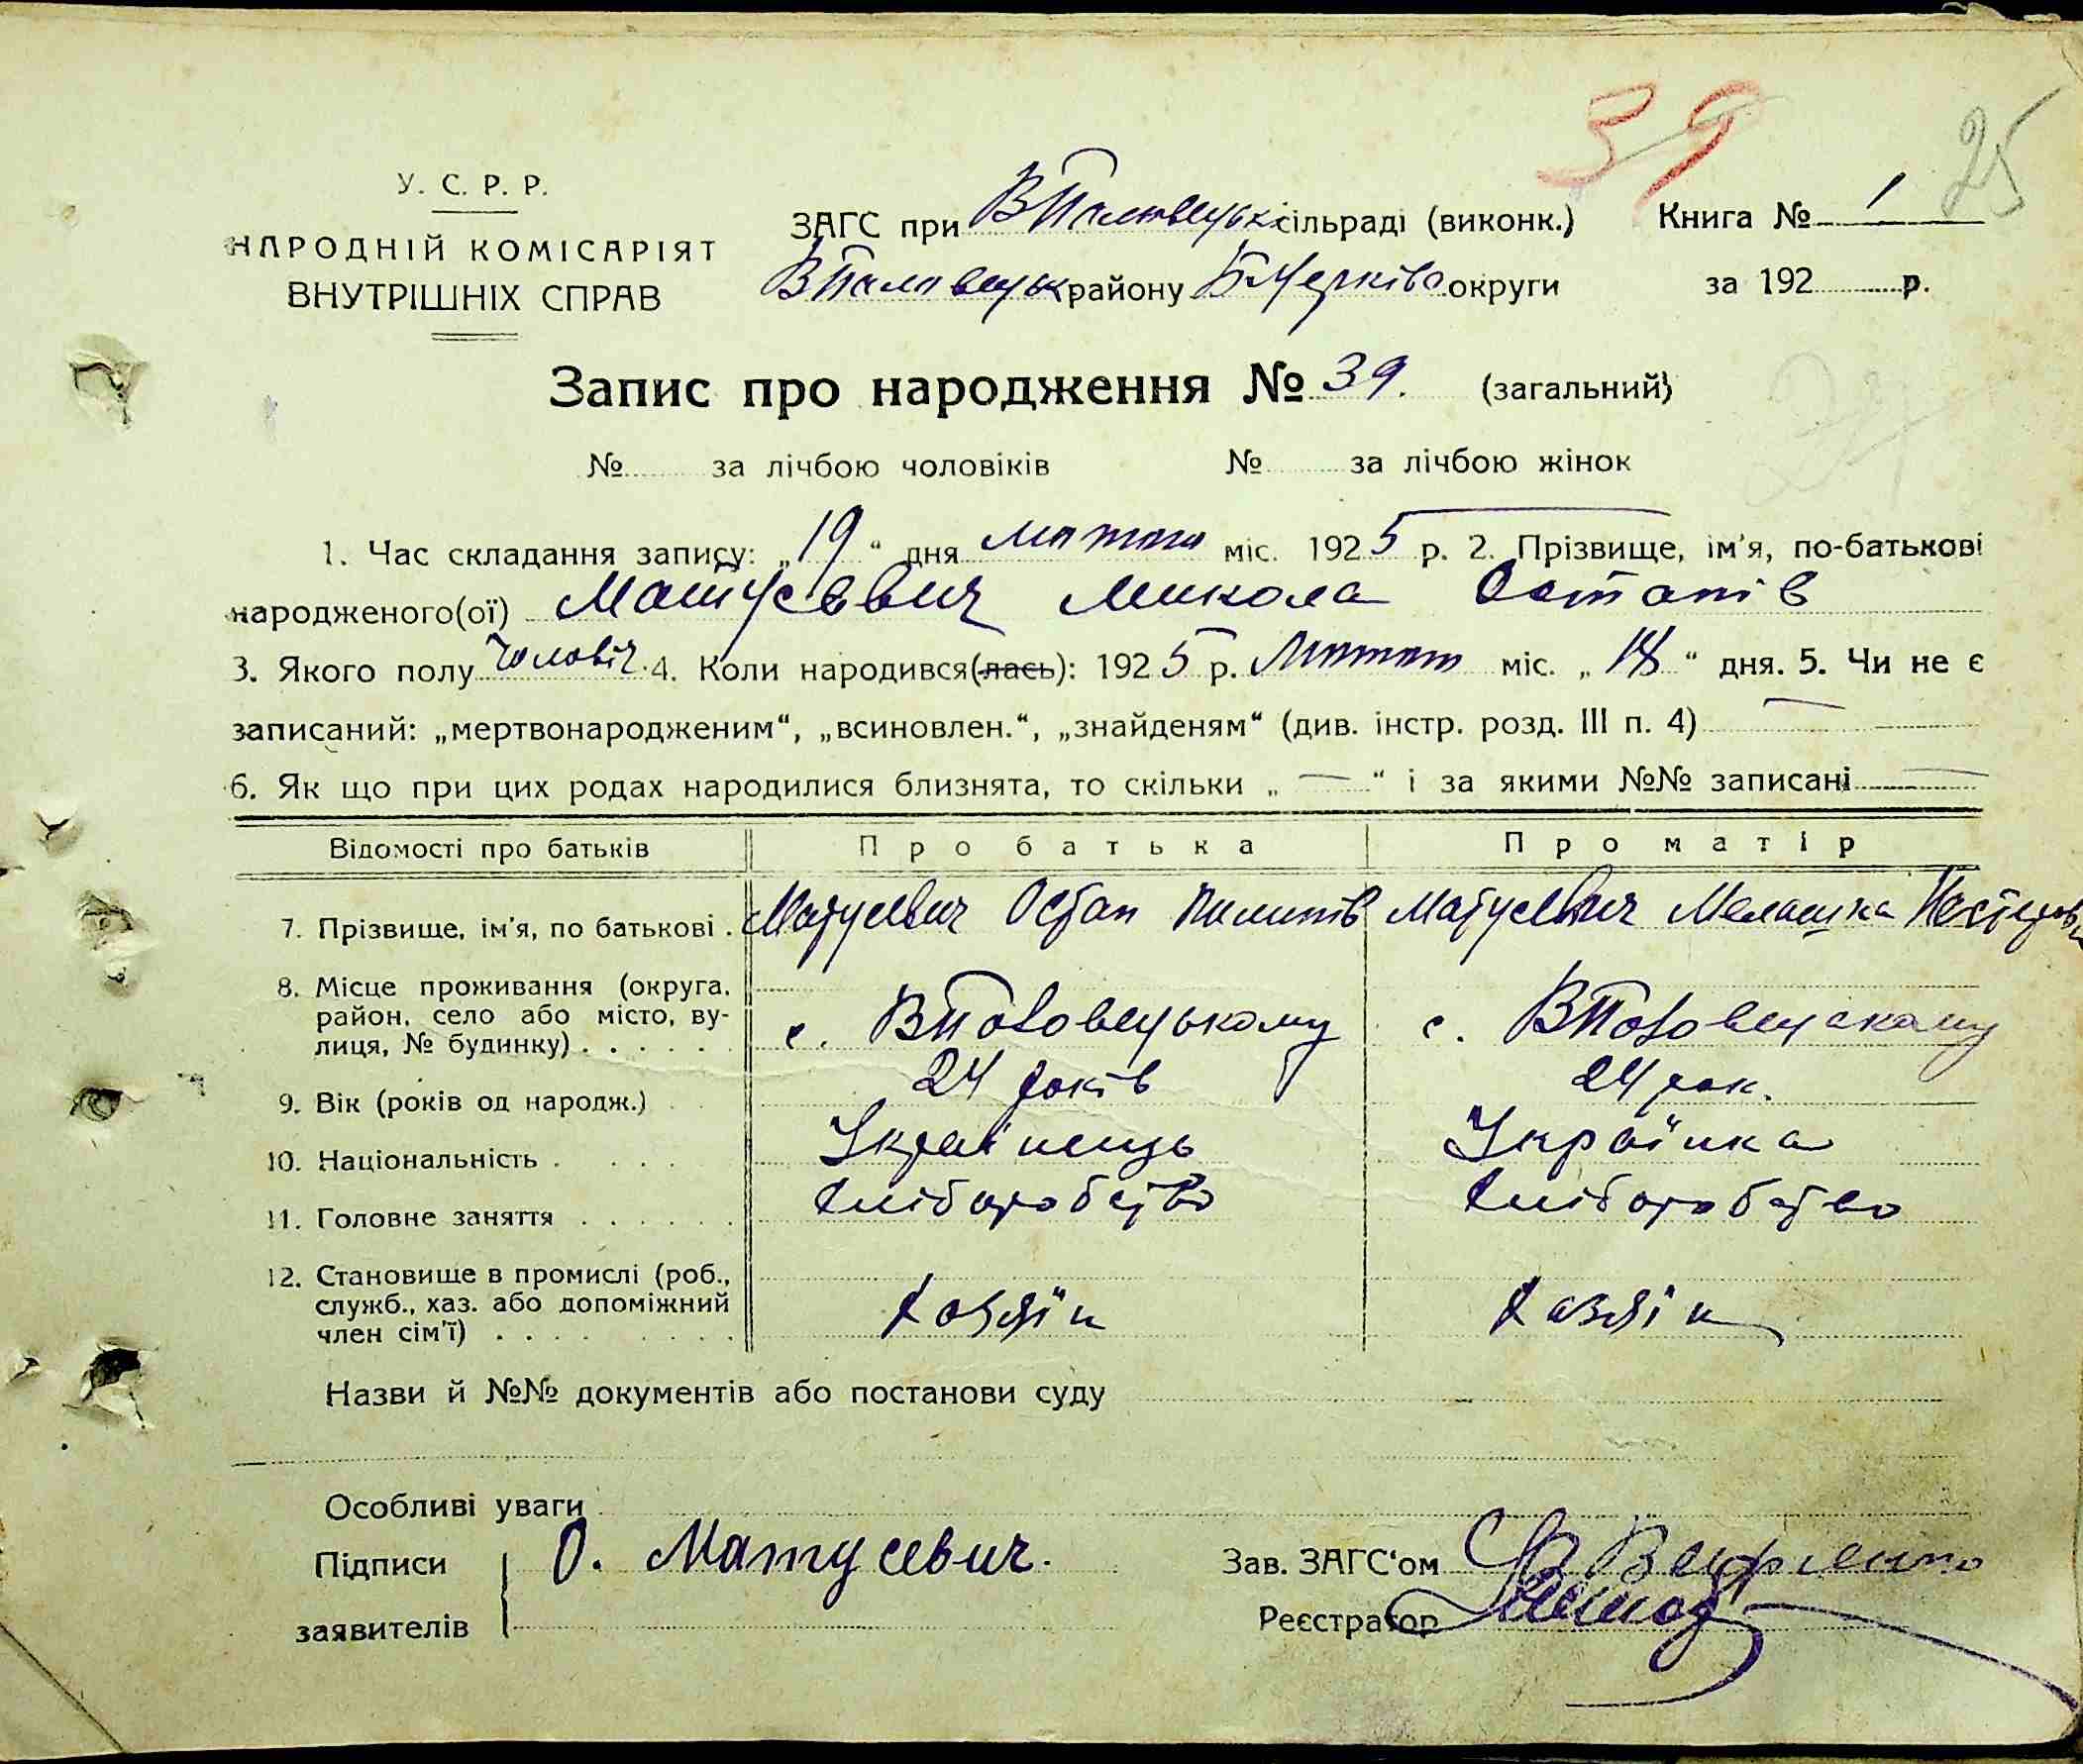 39 25
У. С. Р. Р.
НАРОДНІЙ КОМІСАРІЯТ
ВНУТРІШНІХ СПРАВ
ЗАГС при сільраді (виконк.) Книга № 1
району Б Церків округи за 192 р.
Запис про народження № 39. (загальний)
№ за лічбою чоловіків № за лічбою жінок
1. Час складання запису: „19“ дня лютого міс. 1925 р. 2. Прізвище, ім'я, по-батькові
народженого(ої) Матусевич Микола Остапів
3. Якого полу чоловіч. 4. Коли народився(лась): 1925 р. Лютого міс. „18“ дня. 5. Чи не є
записаний: „мертвонародженим“, „всиновлен.“, „знайденям“ (див. інстр. розд. III п. 4) —
6. Як що при цих родах народилися близнята, то скільки „ — “ і за якими №№ записані —
Відомості про батьків Про батька Про матір
7. Прізвище, ім'я, по батькові . Матусевич Остап Пилипів Матусевич Мелашка
8. Місце проживання (округа,
район, село або місто, ву-
лиця, № будинку) . . . . . с. ВПоловецькому с. ВПоловецькому
9. Вік (років од народж.) 24 років 24 рок.
10. Національність . . . . Українець Українка
11. Головне заняття . . . . . . Хліборобство Хліборобство
12. Становище в промислі (роб.,
служб., хаз. або допоміжний
член сім'ї) . . . . . . . . Хазяїн Хазяїн
Назви й №№ документів або постанови суду
Особливі уваги
Підписи О. Матусевич. Зав. ЗАГС'ом
заявителів Реєстратор